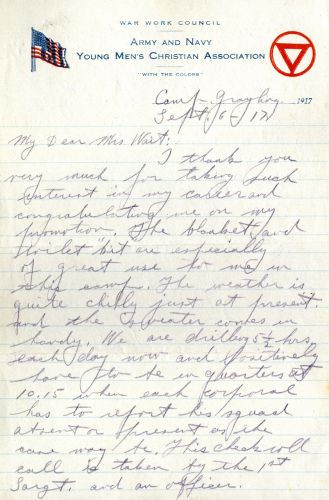 WAR WORK COUNCIL
ARMY AND NAVY
YOUNG MEN'S CHRISTIAN ASSOCIATION
"WITH THE COLORS"
Camp Grayling 1917
Sept. 6 - 17
My Dear Mrs Wait:
I thank you
very much for taking such
interest in my career and
congratulating me on my
promotion. The blanket, and
toilet kit are especially
of great use for me in
this camp. The weather is
quite chilly just at present
and the sweater comes in
handy. We are drilling 5½ hrs.
each day now and positively
have to be in quarters at
10.15 when each corporal
has to report his squad
absent or present as the
case may be. This check roll
call is taken by the 1st
Sargt. and an officer.